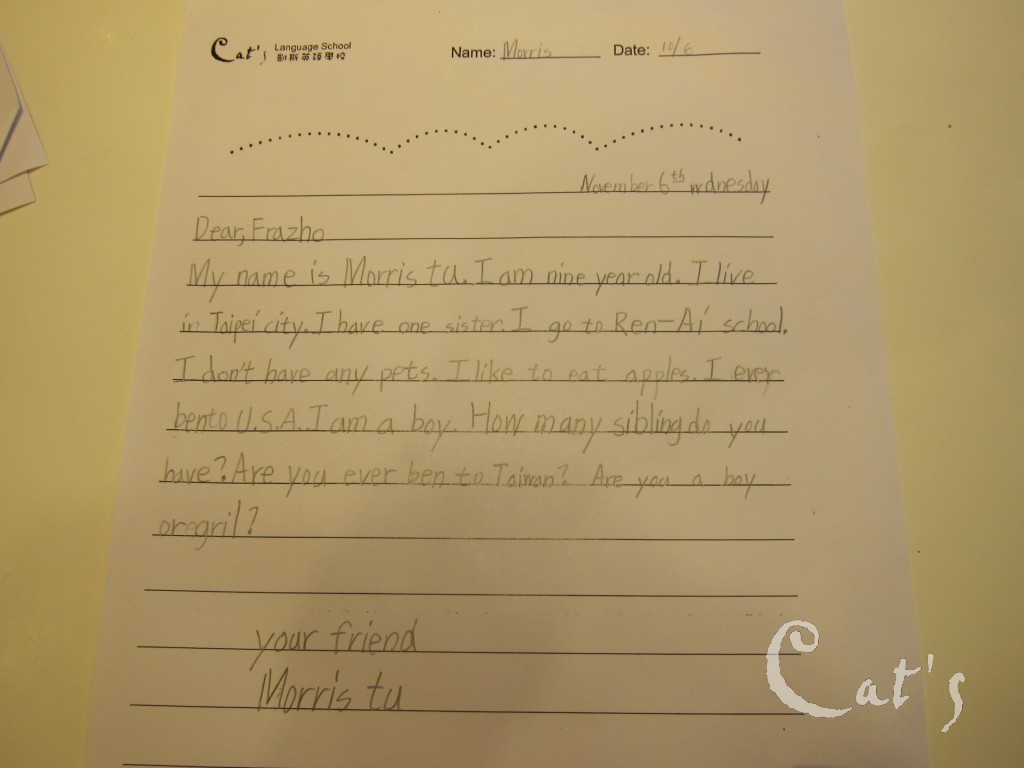 Cat's Language School
凱斯英語學校
Name: Morris Date: 10/6
November 6th wdnesday
Dear, Frazho
My name is Morris tu. I am nine year old. I live
in Taipei city. I have one sister. I go to Ren-Ai school.
I don't have any pets. I like to eat apples. I ever
ben to U.S.A. I am a boy. How many sibling do you
have? Are you ever ben to Taiwan? Are you a boy
or gril?
your friend
Morris tu
Cat's